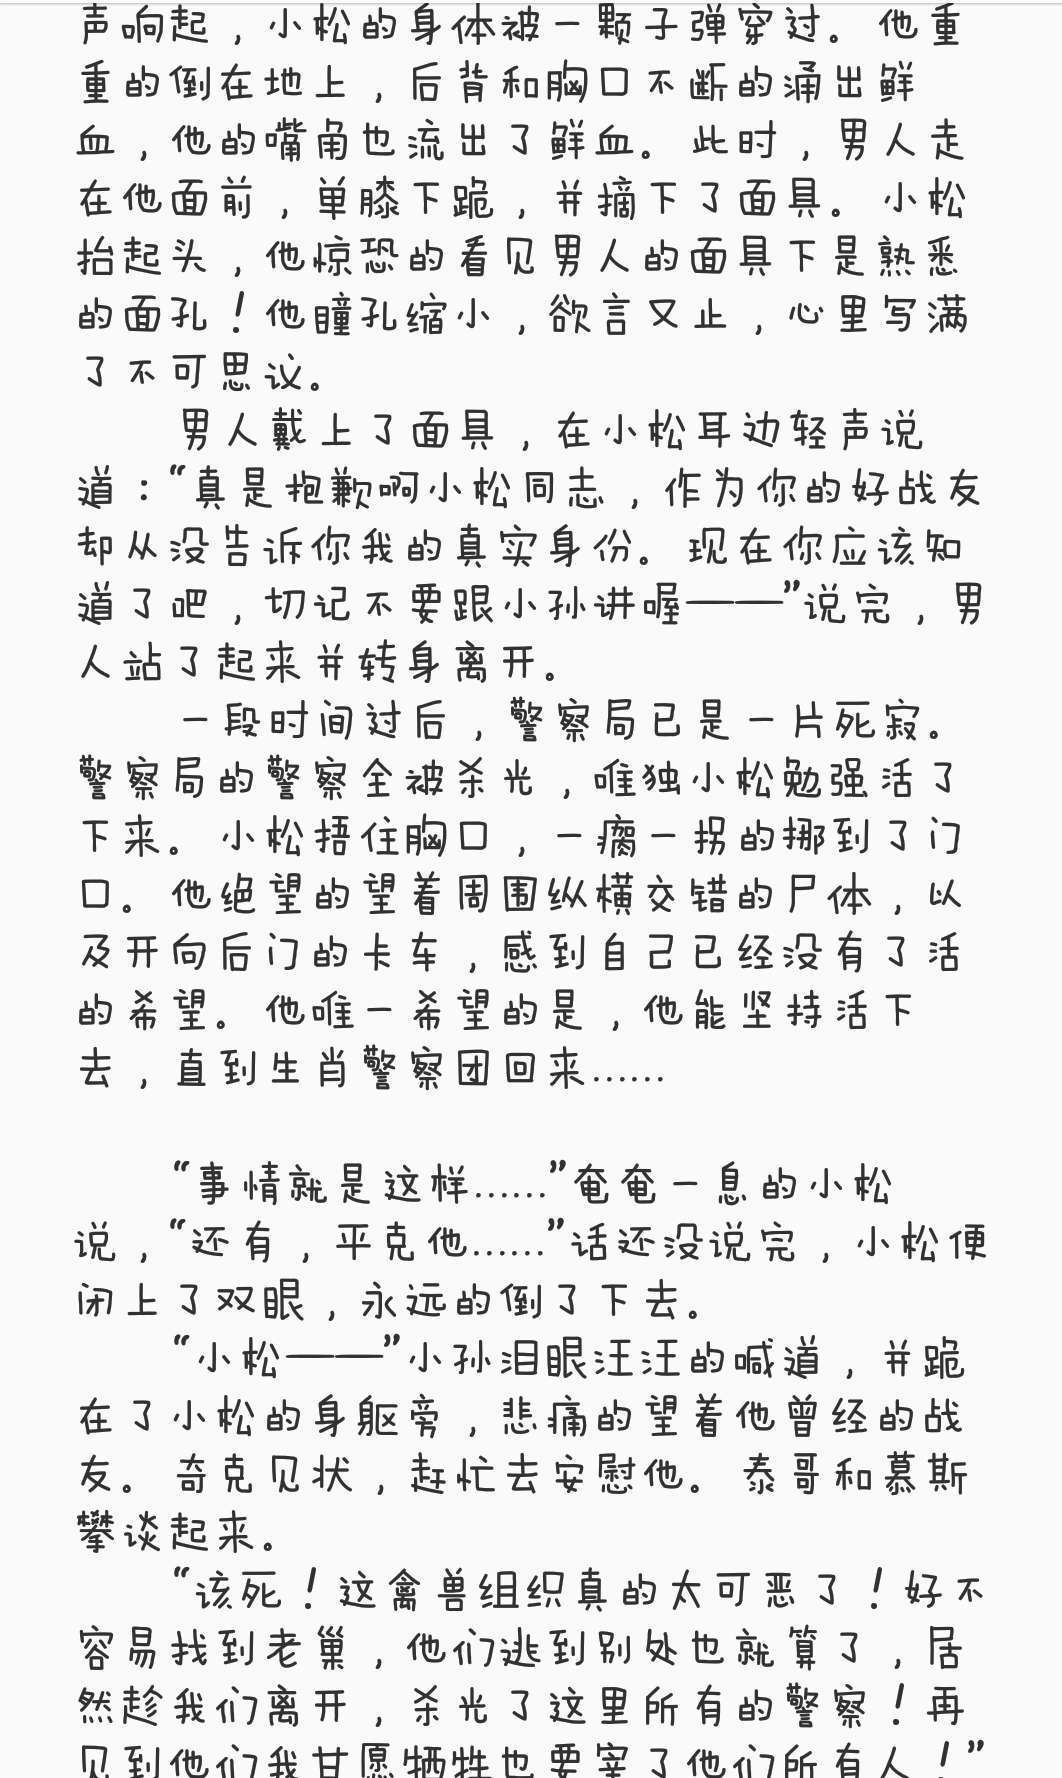 声响起，小松的身体被一颗子弹穿过。他重
重的倒在地上，后背和胸口不断的涌出鲜
血，他的嘴角也流出了鲜血。此时，男人走
在他面前，单膝下跪，并摘下了面具。小松
抬起头，他惊恐的看见男人的面具下是熟悉
的面孔！他瞳孔缩小，欲言又止，心里写满
了不可思议。
男人戴上了面具，在小松耳边轻声说
道：“真是抱歉啊小松同志，作为你的好战友
却从没告诉你我的真实身份。现在你应该知
道了吧，切记不要跟小孙讲喔——”说完，男
人站了起来并转身离开。
一段时间过后，警察局已是一片死寂。
警察局的警察全被杀光，唯独小松勉强活了
下来。小松捂住胸口，一瘸一拐的挪到了门
口。他绝望的望着周围纵横交错的尸体，以
及开向后门的卡车，感到自己已经没有了活
的希望。他唯一希望的是，他能坚持活下
去，直到生肖警察团回来……

“事情就是这样……”奄奄一息的小松
说，“还有，平克他……”话还没说完，小松便
闭上了双眼，永远的倒了下去。
“小松——”小孙泪眼汪汪的喊道，并跪
在了小松的身躯旁，悲痛的望着他曾经的战
友。奇克见状，赶忙去安慰他。泰哥和慕斯
攀谈起来。
“该死！这禽兽组织真的太可恶了！好不
容易找到老巢，他们逃到别处也就算了，居
然趁我们离开，杀光了这里所有的警察！再
见到他们我甘愿牺牲也要宰了他们所有人！”